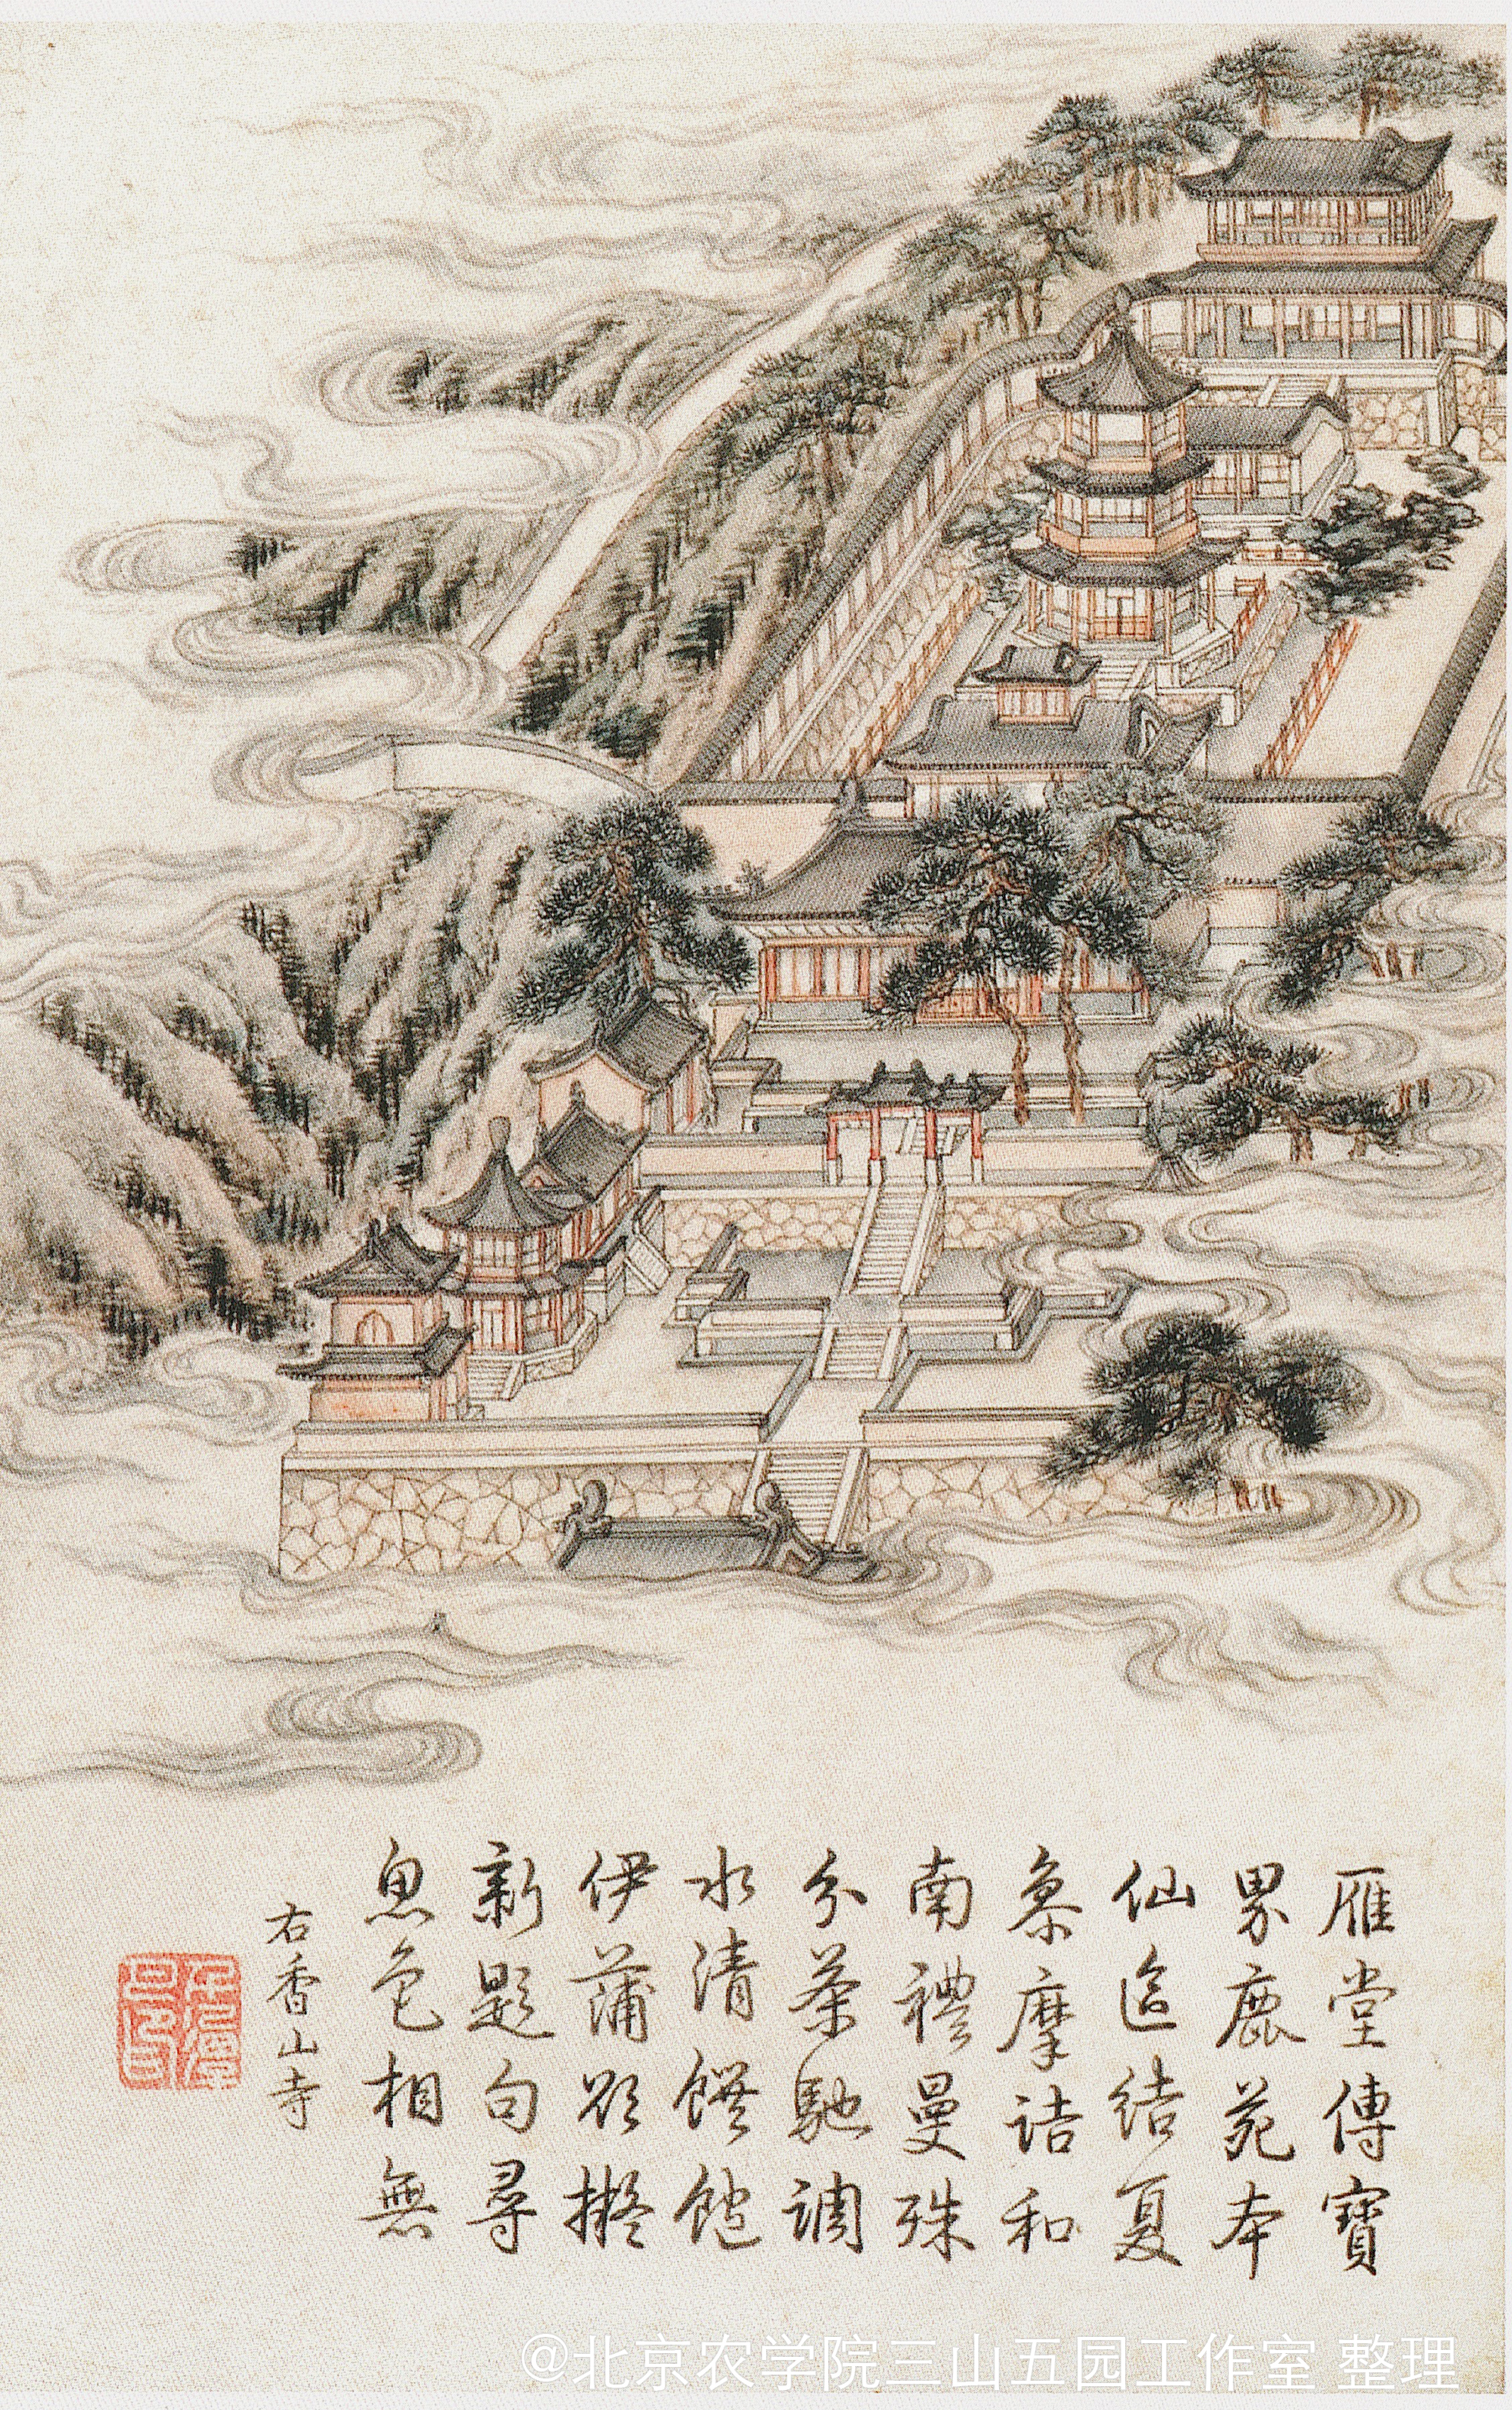 雁堂傳寶
界鹿苑本
仙區結夏
參摩詰和
南禮曼殊
分茶馳調
水清饌飽
伊蒲欲擬
新題句尋
思色相無
右香山寺
@北京农学院三山五园工作室 整理